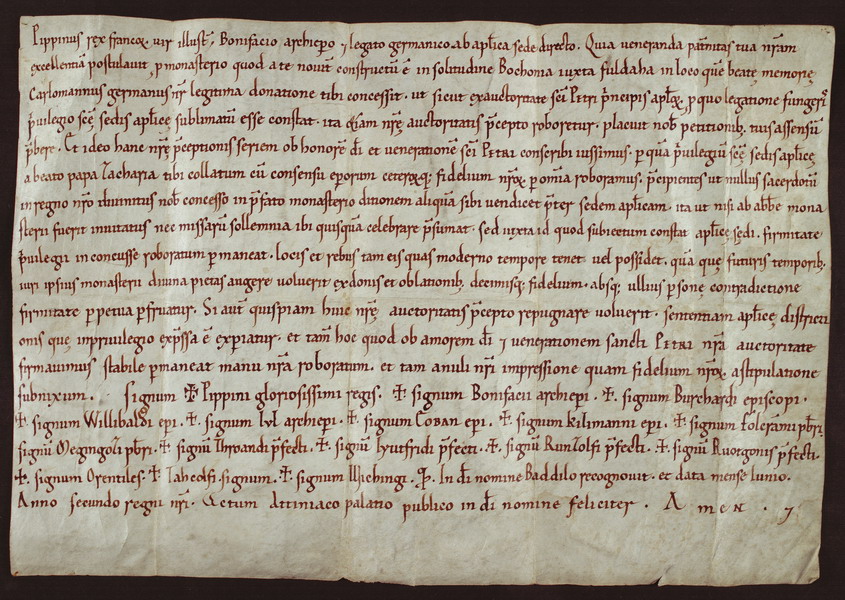 Pippinus rex francoꝝ. vir illustr̄. Bonifacio archiepo ⁊ legato germanico ab aplica sede directo. Quia veneranda pat̄nitas tua nr̄am
excellentiā postulavit, ꝓ monasterio quod a te novit̄ constructū ē in solitudine Bochonia iuxta fuldaha in loco quē beatę memorię
Carlomannus germanus nr̄ legitima donatione tibi concessit. ut sicut ex auctoritate sc̄i PETRI p̄ncipis aplꝝ, ꝓ quo legatione fungeris
p̄uilegio sc̄ę sedis aplicę sublimatū esse constat. ita &iam nr̄ę auctoritatis p̄cepto roboretur. placuit nob̄ petitionib; tuis assensū
p̄bere. Et ideo hanc nr̄ę p̄ceptionis seriem ob honorē dī et venerationē sc̄i PETRI conscribi iussimus. per quā p̄uilegiū sc̄ę sedis aplicę
a beato papa Zacharia tibi collatum cū consensu eporum ceteroꝝq; fidelium nr̄oꝝ per om̄ia roboramus. p̄cipientes ut nullus sacerdotū
in regno nr̄o divinitus nob̄ concesso in p̄fato monasterio ditionem aliquā sibi vendicet p̄ter sedem aplicam. ita ut nisi ab abbe mona
sterii fuerit invitatus nec missarū sollemnia ibi quisquā celebrare p̄sumat. sed iuxta id quod subiectum constat aplicę sedi. firmitate
p̄uilegii inconcusse roboratum permaneat. locis et rebus tam eis quas moderno tempore tenet vel possidet. quā quę futuris temporib;
iuri ipsius monasterii divina pietas augere voluerit ex donis et oblationib; decimisq; fidelium. absq; ullius personę contradictione
firmitate perpetua perfruatur. Si aut̄ quispiam huic nr̄ę auctoritatis p̄cepto repugnare voluerit. sententiam aplicę districti
onis quę in privilegio exp̄ssa ē experiatur. et tam̄ hoc quod ob amorem dī ⁊ venerationem sancti PETRI nr̄a auctoritate
firmavimus stabile permaneat manu nr̄a roboratum. et tam anuli nr̄i impressione quam fidelium nr̄oꝝ astipulatione
subnixum. Signum ✠ Pippini gloriosissimi regis. ✠ signum Bonifacii archiepi. ✠ signum Burchardi episcopi.
✠ signum Willibaldi epi. ✠ signum lvl archiepi. ✠ signum Coban epi. ✠ signum kilimanni epi. ✠ signum tolerāmi pbr̄i.
signū Megingozi pbr̄i. ✠ signū Throandi p̄fecti. ✠ signū lyutfridi p̄fecti. ✠ signū Runzolfi p̄fecti. ✠ signū Ruotgonis p̄fecti.
✠ signum Orentiles ✠ Zaheolfi signum. ✠ signum Wichingi. In dī nomine Baddilo recognovit. et data mense Iunio.
Anno secundo regni nr̄i. Actum Attiniaco palatio publico in dī nomine feliciter. AmEN. ⁊